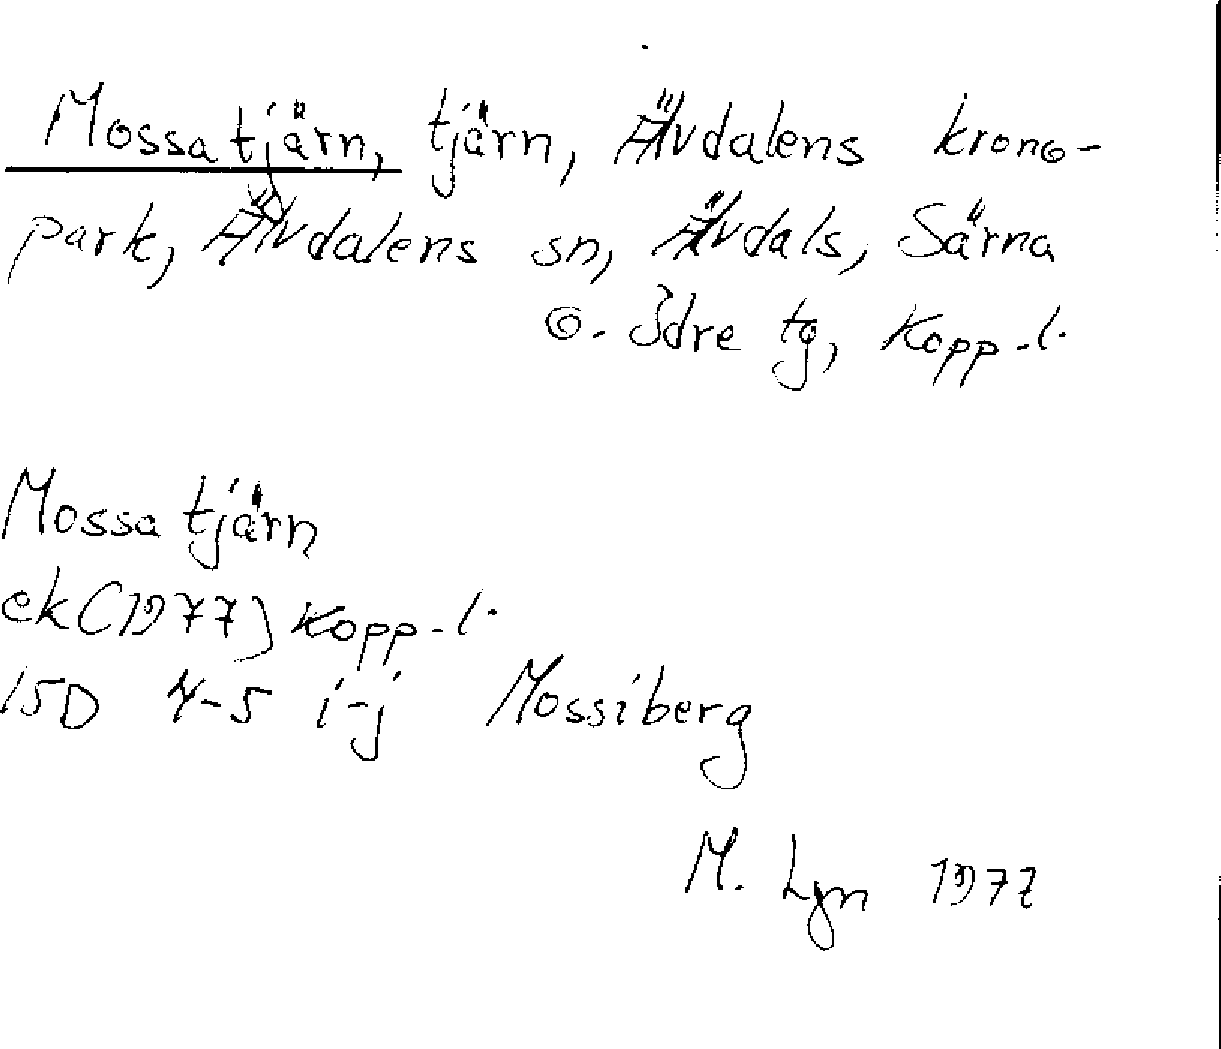 Mossa tjärn, tjärn, Älvdalens krono-
park, Älvdalens sn, Älvdals, Särna
o. Idre tg, Kopp-l.
Mossa tjärn
ek (1977) Kopp-l.
15D 4-5 i-j Mossiberg
M. Lgn 1977